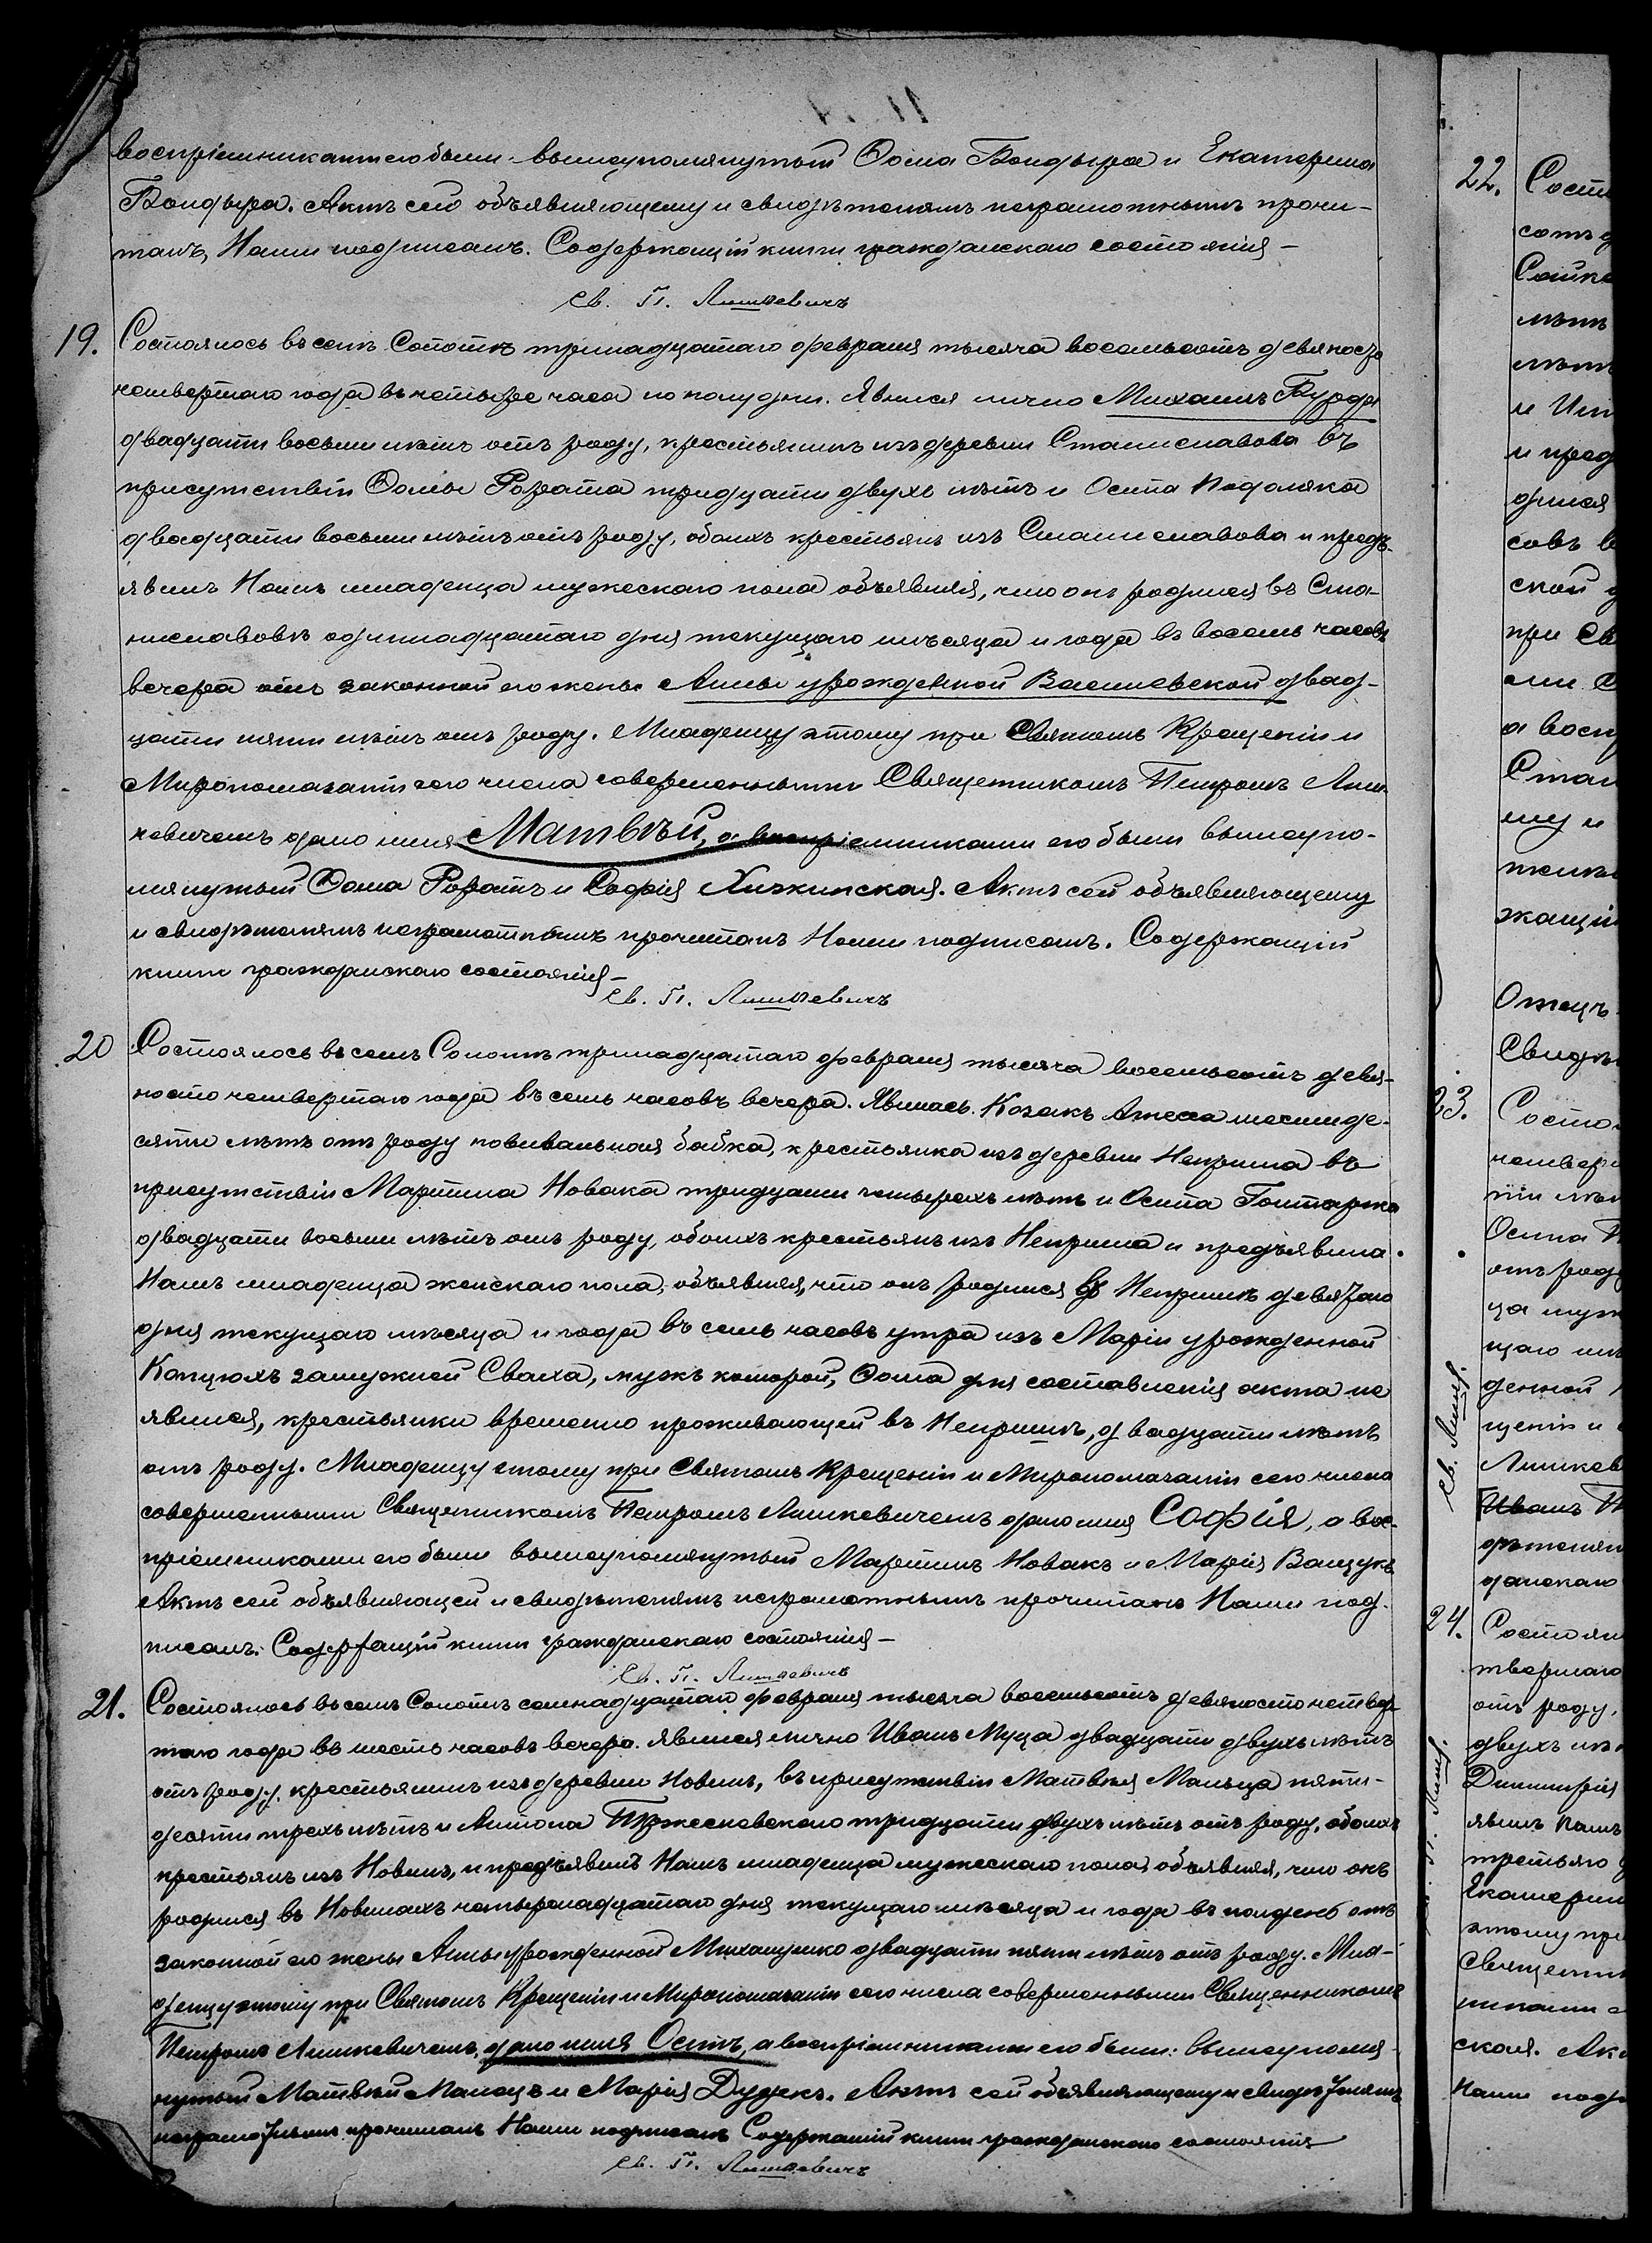 воспріемниками его были: вышеупомянутый Ѳома Бондыра и Екатерина
Бондыра. Актъ сей объявляющему и свидѣтелямъ неграмотнымъ прочи-
танъ, Нами подписанъ. Содержащій книги гражданскаго состоянія –
Св. П. Лишкевичъ
19. Состоялось въ селѣ Сопотѣ тринадцатаго февраля тысяча восемьсотъ девяносто
четвертаго года въ четыре часа по полудни. Явился лично Михаилъ Бурда
двадцати восьми лѣтъ отъ роду, крестьянинъ изъ деревни Станиславова въ
присутствіи Ѳомы тридцати двухъ лѣтъ и Осипа Подоляка
двадцати восьми лѣтъ отъ роду, обоихъ крестьянъ изъ Станиславова и предъ-
явилъ Намъ младенца мужескаго пола объявляя, что онъ родился въ Ста-
ниславовѣ одиннадцатаго дня текущаго мѣсяца и года въ восемь часовъ
вечера отъ законной его жены Анны урожденной Василевской двад-
цати пяти лѣтъ отъ роду. Младенцу этому при Святомъ Крещеніи и
Миропомазаніи сего числа совершенными Священникомъ Петромъ Лиш-
кевичемъ дано имя Матвѣй, а воспріемниками его были вышеупо-
мянутый Ѳома и Софія Хижинская. Актъ сей объявляющему
и свидѣтелямъ неграмотнымъ прочитанъ Нами подписанъ. Содержащій
книги гражданскаго состоянія –
Св. П. Лишкевичъ
20 Состоялось въ селѣ Сопотѣ тринадцатаго февраля тысяча восемьсотъ девя-
носто четвертаго года въ семь часовъ вечера. Явилась Козакъ шестиде-
сяти лѣтъ отъ роду повивальная бабка, крестьянка изъ деревни Неприша въ
присутствіи Мартина Новака тридцати четырехъ лѣтъ и Осипа Гонтаржа
двадцати восьми лѣтъ отъ роду, обоихъ крестьянъ изъ Неприша и предъявила
Намъ младенца женскаго пола, объявляя, что онъ родился въ Непришѣ девятаго
дня текущаго мѣсяца и года въ семь часовъ утра изъ Маріи урожденной
Капцюхъ замужней Сваха, мужъ которой, Ѳома для составленія акта не
явился, крестьянки временно проживающей въ Непришѣ, двадцати лѣтъ
отъ роду. Младенцу етому при Святомъ Крещеніи и Миропомазаніи сего числа
совершенными Священникомъ Петромъ Лишкевичемъ дано имя Софія, а вос-
пріемниками его были вышеупомянутый Мартинъ Новакъ и Марія Ващукъ
Актъ сей объявляющей и свидѣтелямъ неграмотнымъ прочитанъ Нами под-
писанъ. Содержащій книги гражданскаго состоянія –
Св. П. Лишкевичъ
21. Состоялось въ селѣ Сопотѣ семнадцатаго февраля тысяча восемьсотъ девяносто четвер-
таго года въ шесть часовъ вечера. Явился лично Иванъ Муца двадцати двухъ лѣтъ
отъ роду, крестьянинъ изъ деревни Новинъ, въ присутствіи Матвѣя Мальца пяти-
десяти трехъ лѣтъ и Антона тридцати двухъ лѣтъ отъ роду, обоихъ
крестьянъ изъ Новинъ, и предъявилъ Намъ младенца мужескаго пола объявляя, что онъ
родился въ Новинахъ четырнадцатаго дня текущаго мѣсяца и года въ полдень отъ
законной его жены Анны урожденной Михалушко двадцати пяти лѣтъ отъ роду. Мла-
денцу этому при Святомъ Крещеніи и Миропомазаніи сего числа совершенными Священникомъ
Петромъ Лишкевичемъ, дано имя Осипъ, а воспріемниками его были: вышеупомя-
нутый Матвѣй Малецъ и Марія Дудекъ. Актъ сей объявляющему и свидѣтелямъ
неграмотнымъ прочитанъ Нами подписанъ Содержащій книги гражданскаго состоянія
Св. П. Лишкевичъ
22.
при Св
а восп
Стан
му и
жащій
Отецъ
Свидѣт
23. Состо
четверт
Осипа
отъ роду
денной
щеніи и
Лишкев
Иванъ
данскаго
Св. Лишк.
24. Состоял
твертаго
отъ роду,
двухъ лѣт
Димитрія
явилъ Намъ
третьяго
Екатерин
этому при
Священни
ская. Ак
Нами подп